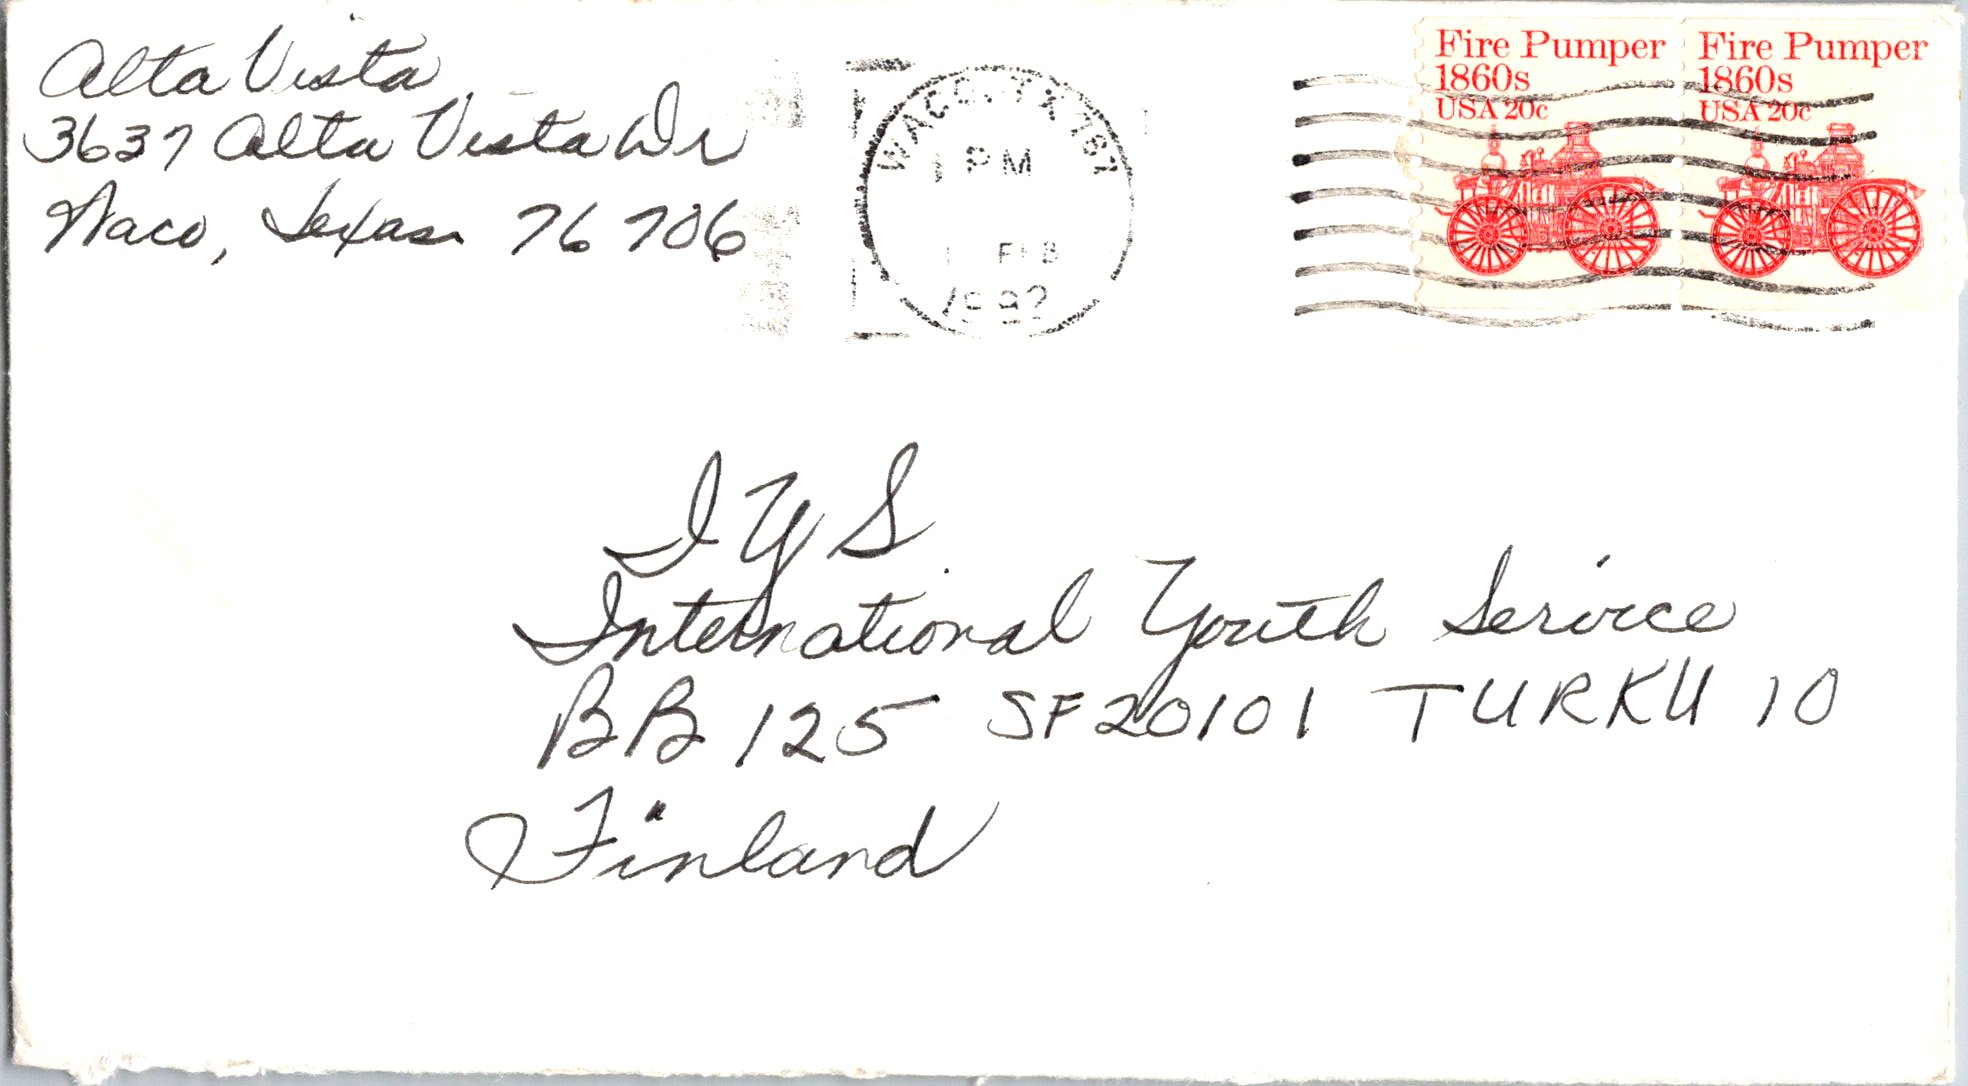 Alta Vista
3637 Alta Vista Dr
Waco, Texas 76706
WACO, TX 767
PM
FEB
1982
Fire Pumper
1860s
USA 20c
Fire Pumper
1860s
USA 20c
I Y S
International Youth Service
BB 125 SF20101 TURKU 10
Finland